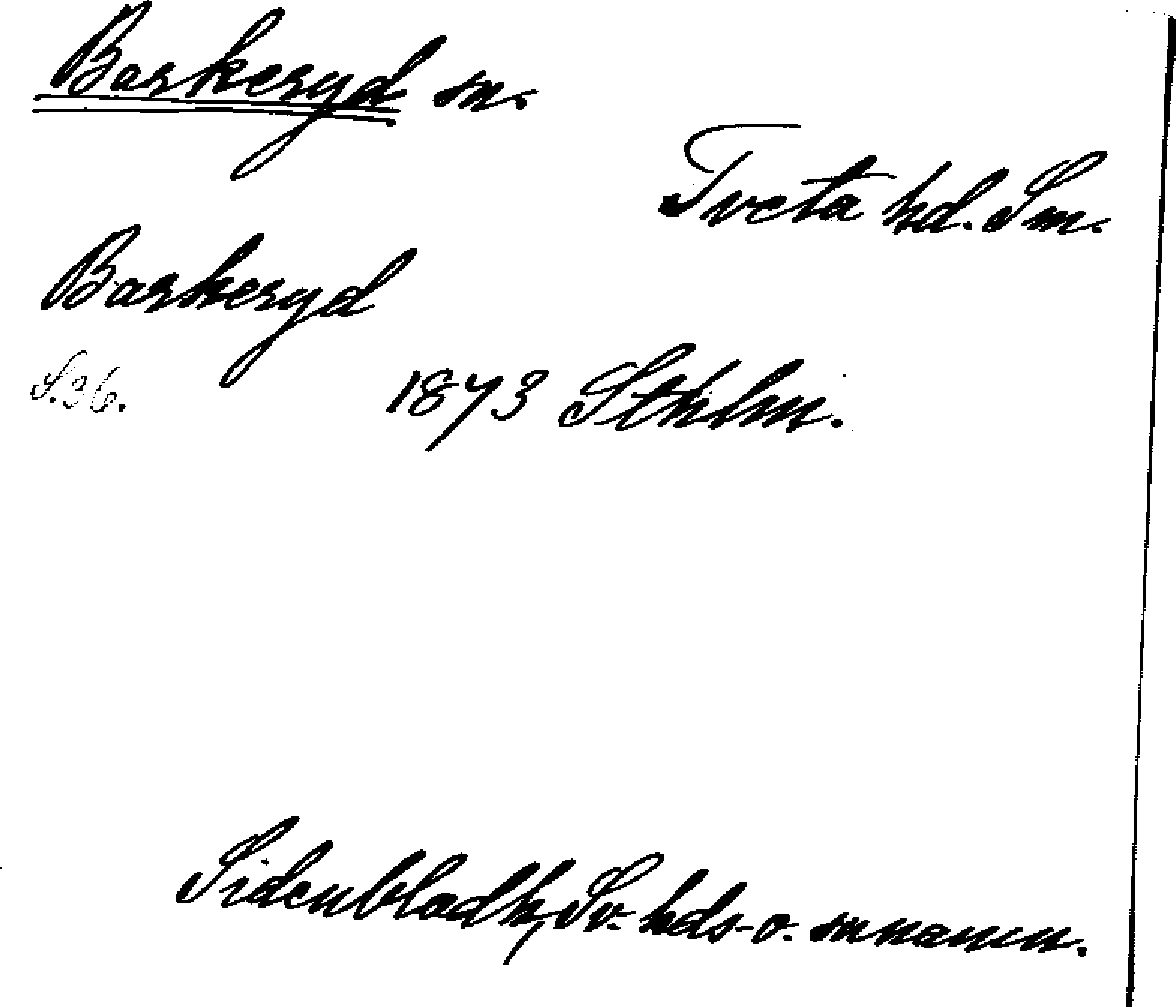 Barkeryd sn.
Tveta hd. Sm.
Barkeryd
S.36. 1873 Sthlm.
Sidenbladh, Sv. hds- o. snnamn.